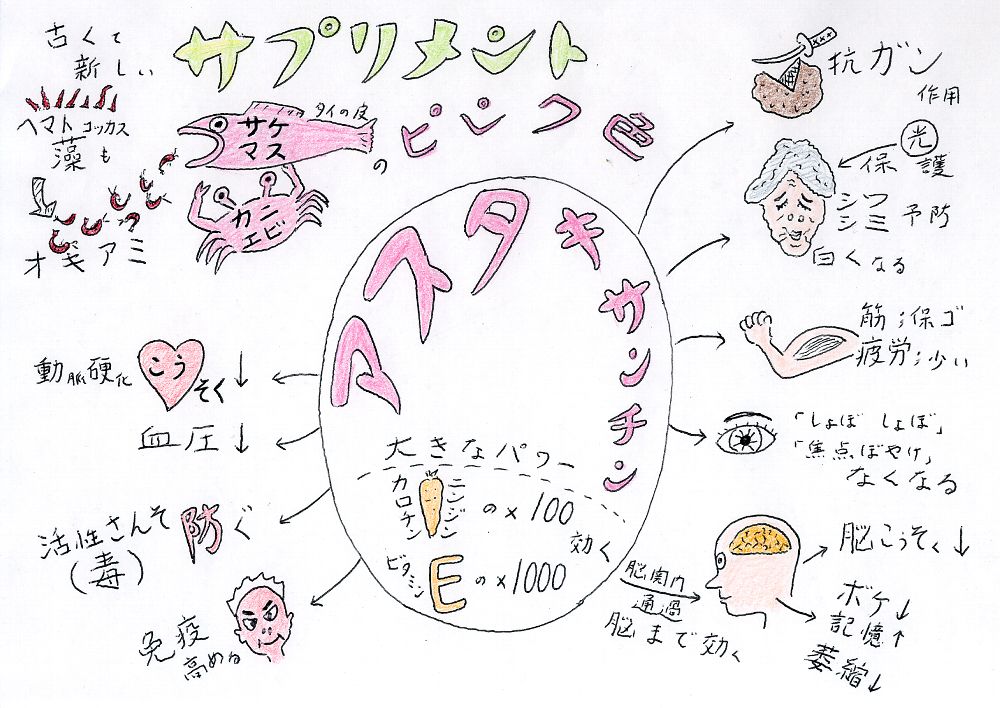 古くて
新しい
サプリメント
ヘマトコッカス
藻も
オキアミ
サケ
マス
タイの皮
カニ
エビ
の
ピンク色
アスタキサンチン
大きなパワー
カロチン
ニンジン
の×100
ビタミン
Eの×1000
効く
抗ガン
作用
光
保護
シワ
シミ
予防
白くなる
筋;保ゴ
疲労;少い
「しょぼしょぼ」
「焦点ぼやけ」
なくなる
脳関門
通過
脳まで効く
脳こうそく↓
ボケ↓
記憶↑
萎縮↓
動脈硬化
こう
そく↓
血圧↓
活性さんそ
(毒)
防ぐ
免疫
高める